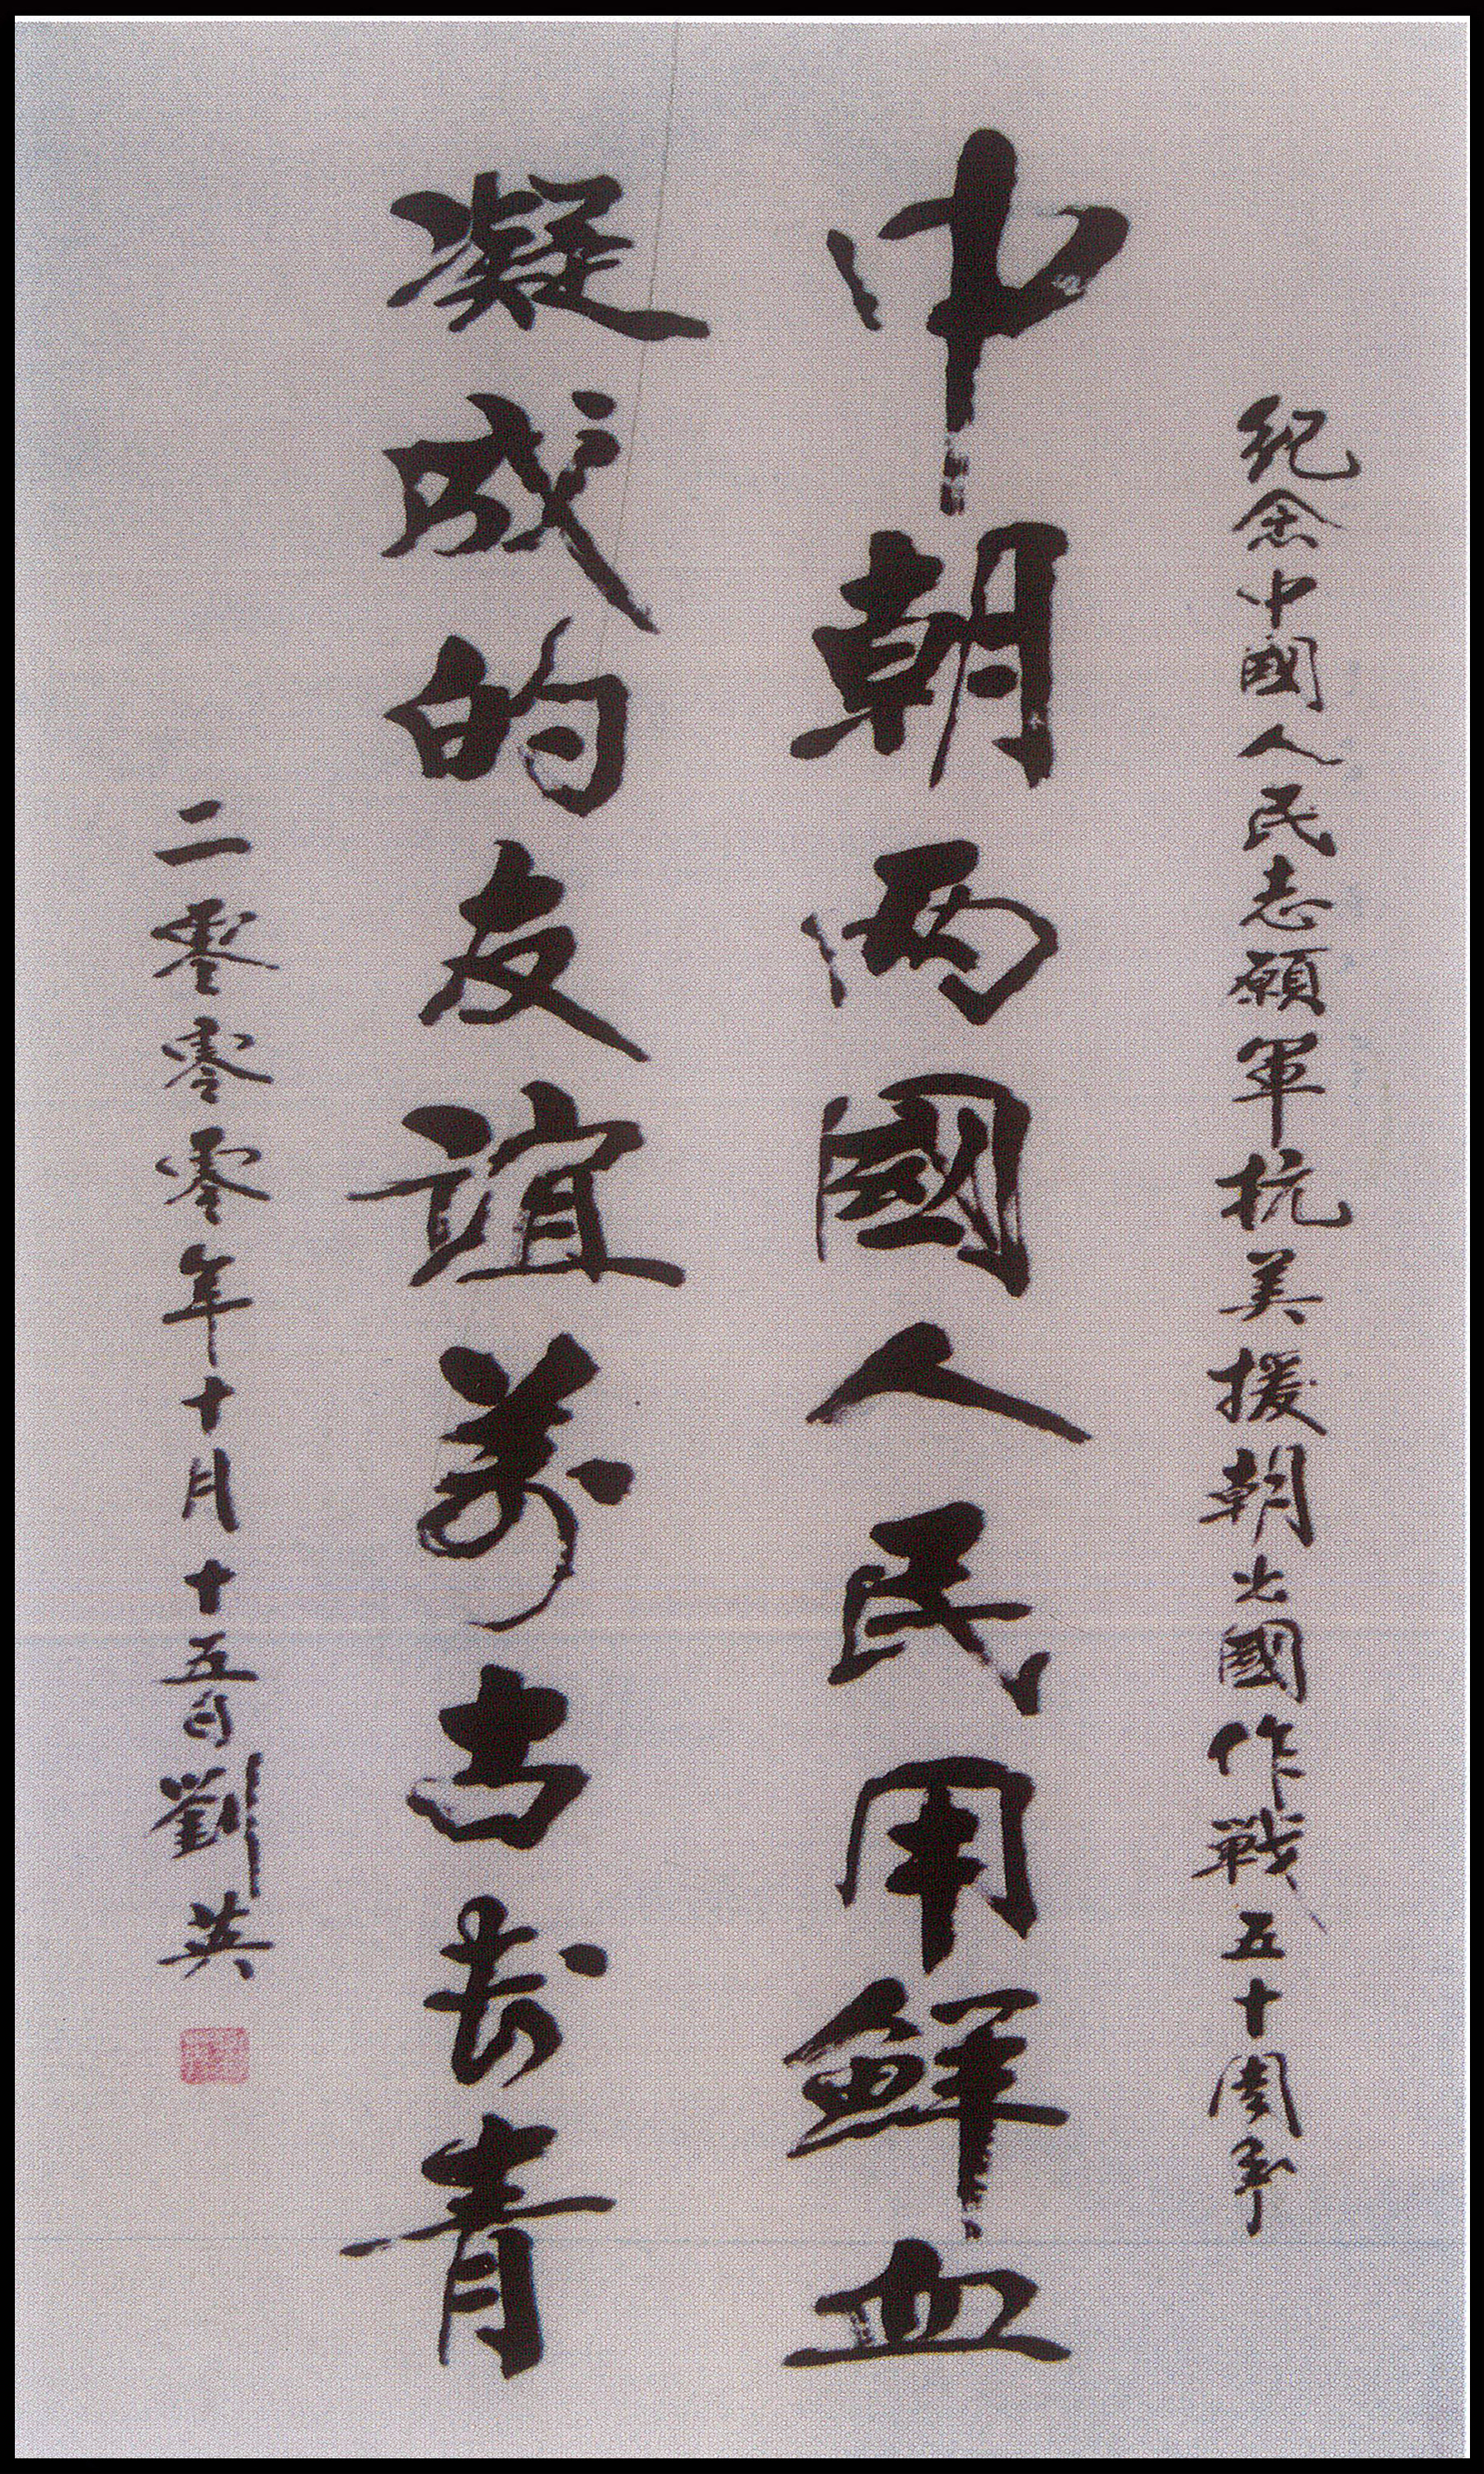 纪念中國人民志願軍抗美援朝出國作戰五十周年
中朝两國人民用鲜血
凝成的友谊萬古长青
二零零零年十月十五日劉英